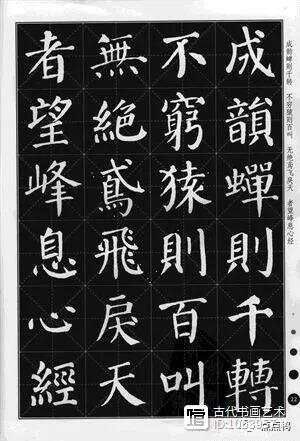 成韻蟬則千轉
不窮猿則百叫
無絕鳶飛戾天
者望峰息心經
成韵蝉则千转　不穷猿则百叫　无绝鸢飞戾天　者望峰息心经
22
古代书画艺术